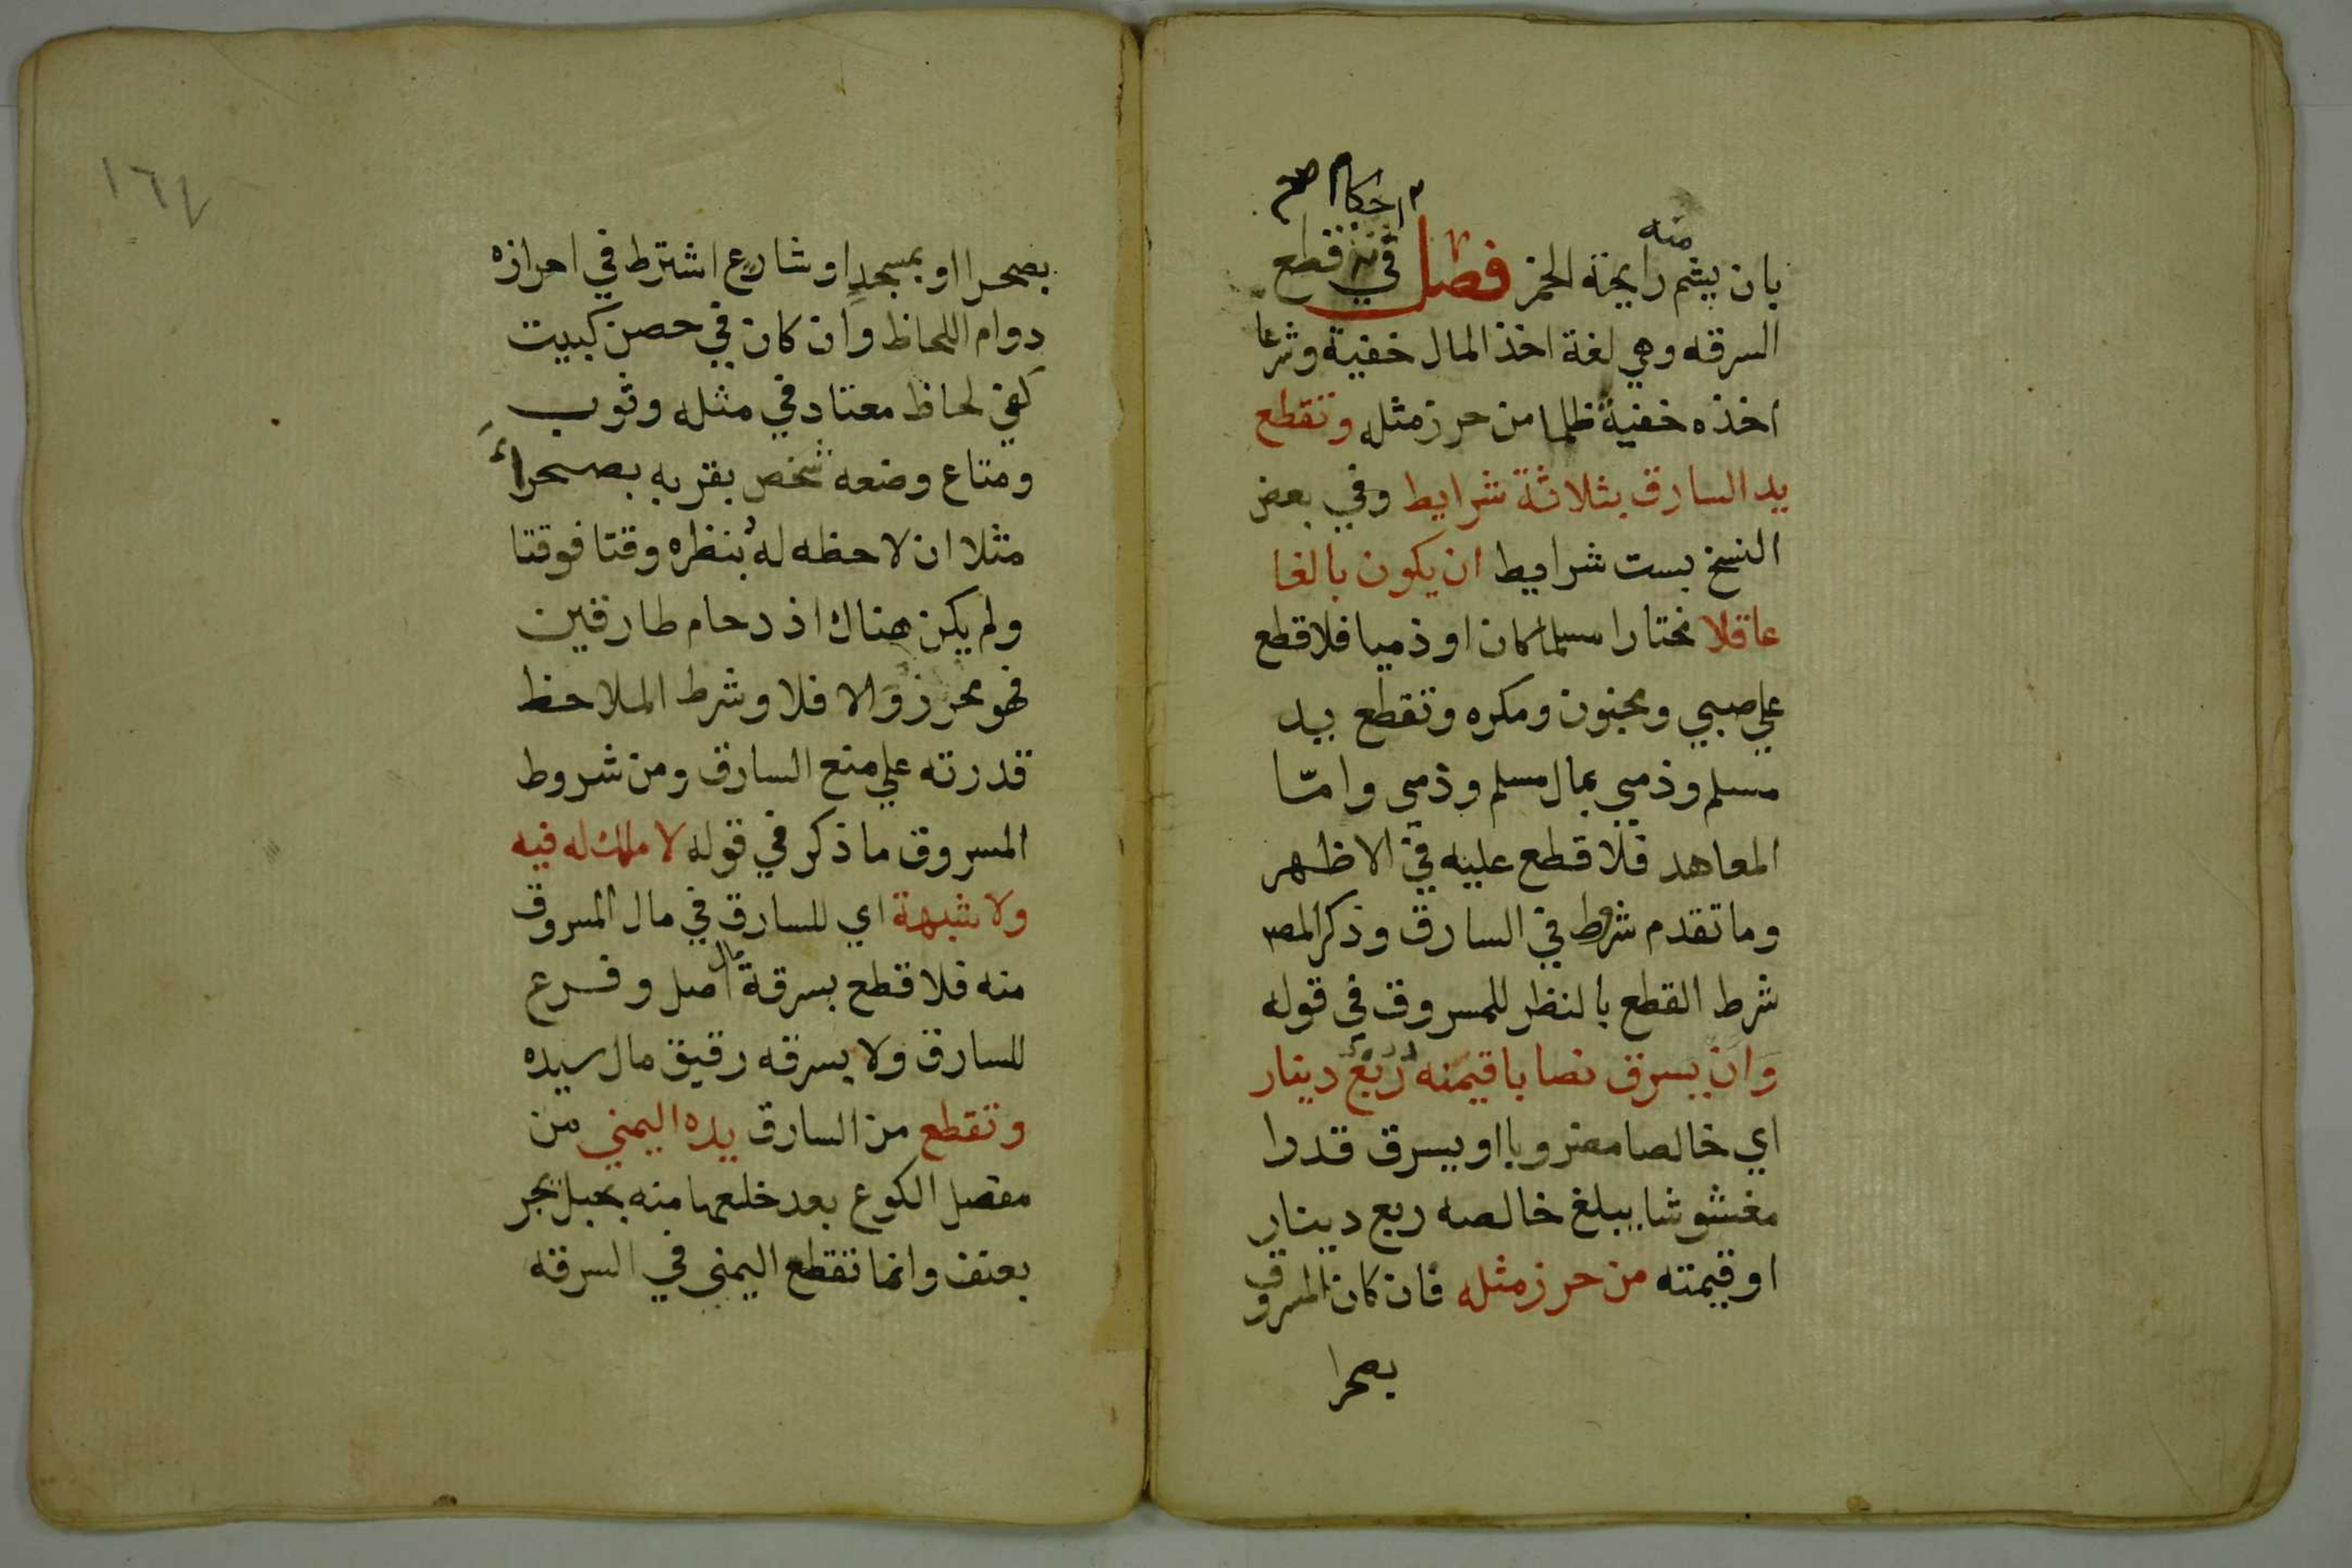 احكام صح
منه
بان يشم رايحة الخمر فصل في قطع
السرقه وهي لغة اخذ المال خفية وشرعا
اخذه خفية ظلما من حرز مثله وتقطع
يد السارق بثلاثة شرايط وفي بعض
النسخ بست شرايط ان يكون بالغا
عاقلا مختارا مسلما كان او ذميا فلا قطع
علي صبي ومجنون ومكره وتقطع يد
مسلم وذمي بمال مسلم وذمي وامّا
المعاهد فلا قطع عليه في الاظهر
وما تقدم شرط في السارق وذكر المصـ
شرط القطع بالنظر للمسروق في قوله
وان يسرق نصابا قيمته ربع دينار
اي خالصا مضروبا او يسرق قدرا
مغشوشا يبلغ خالصه ربع دينار
او قيمته من حرز مثله فان كان المسروق
بصحرا
١٦٤
بصحرا او بمسجد او شارع اشترط في احرازه
دوام اللحاظ وان كان في حصن كبيت
كفي لحاظ معتاد في مثله وثوب
ومتاع وضعه شخص بقربه بصحراء
مثلا ان لاحظه له بنظره وقتا فوقتا
ولم يكن هناك اذدحام طارقين
فهو محرز والا فلا وشرط الملاحظ
قدرته علي منع السارق ومن شروط
المسروق ما ذكر في قوله لا ملك له فيه
ولا شبهة اي للسارق في مال المسروق
منه فلا قطع بسرقة مال اصل وفرع
للسارق ولا بسرقه رقيق مال سيده
وتقطع من السارق يده اليمني من
مفصل الكوع بعد خلعها منه بحبل يجر
بعنف وانما تقطع اليمني في السرقه